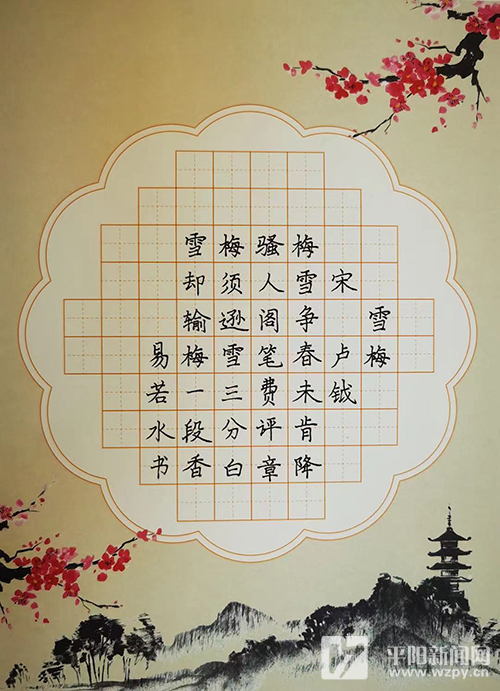 雪梅
宋 卢钺
梅雪争春未肯降
骚人阁笔费评章
梅须逊雪三分白
雪却输梅一段香
易若水书
平阳新闻网
www.wzpy.cn